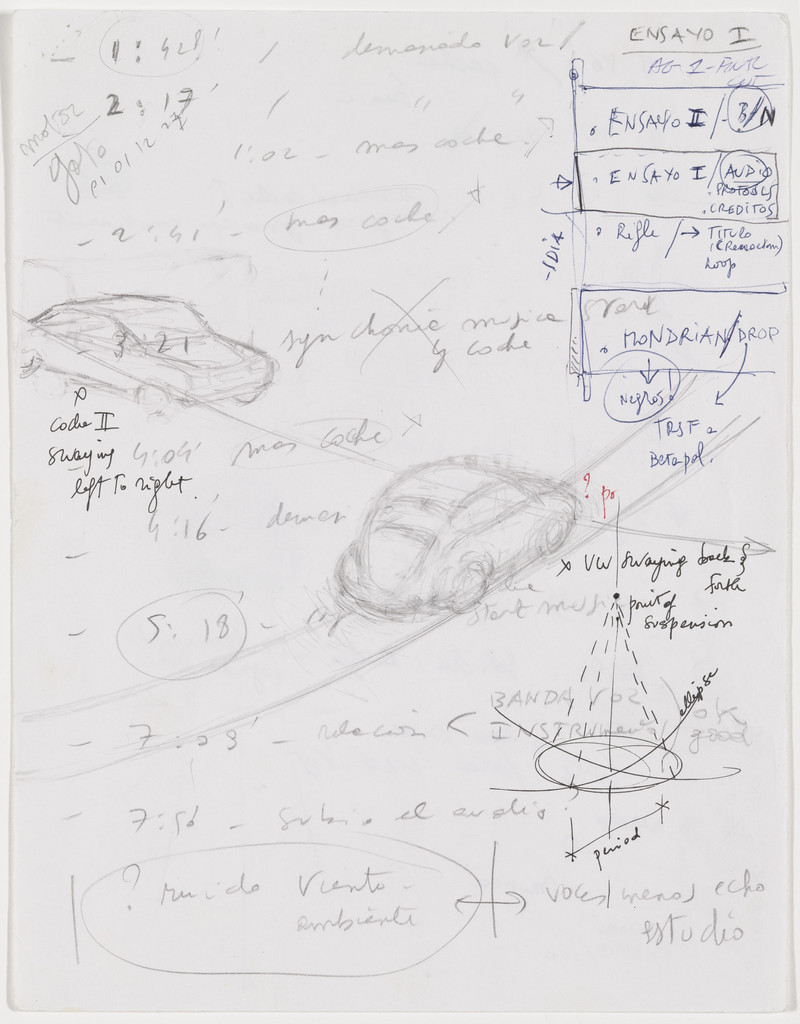 ENSAYO I
- 1:42 / demasiado voz /
2:17 / " "
motor
goto
1:02 - mas coche ↗
- 2:41' - mas coche
- 3:21 synchonie musica
y coche
start
x
coche II
swaying
left to right.
4:04' mas coche x
- 4:16 -
- 5:18' -
start
- 7:23' - relación < BANDA VOZ
INSTRUMental
ok
good
- 7:56 - subir el audio?
? ruido viento -
ambiente
↔ voces/menos echo
estudio
• ENSAYO II / - B/N
• ENSAYO I / AUDIO
.CREDITOS
• Rifle / → TITULO
Loop
- 1 DIA
• MONDRIAN/DROP
Negros?
TRSF a
Betapal.
? po
x VW swaying back &
forth
point of
suspension
ellipse
period